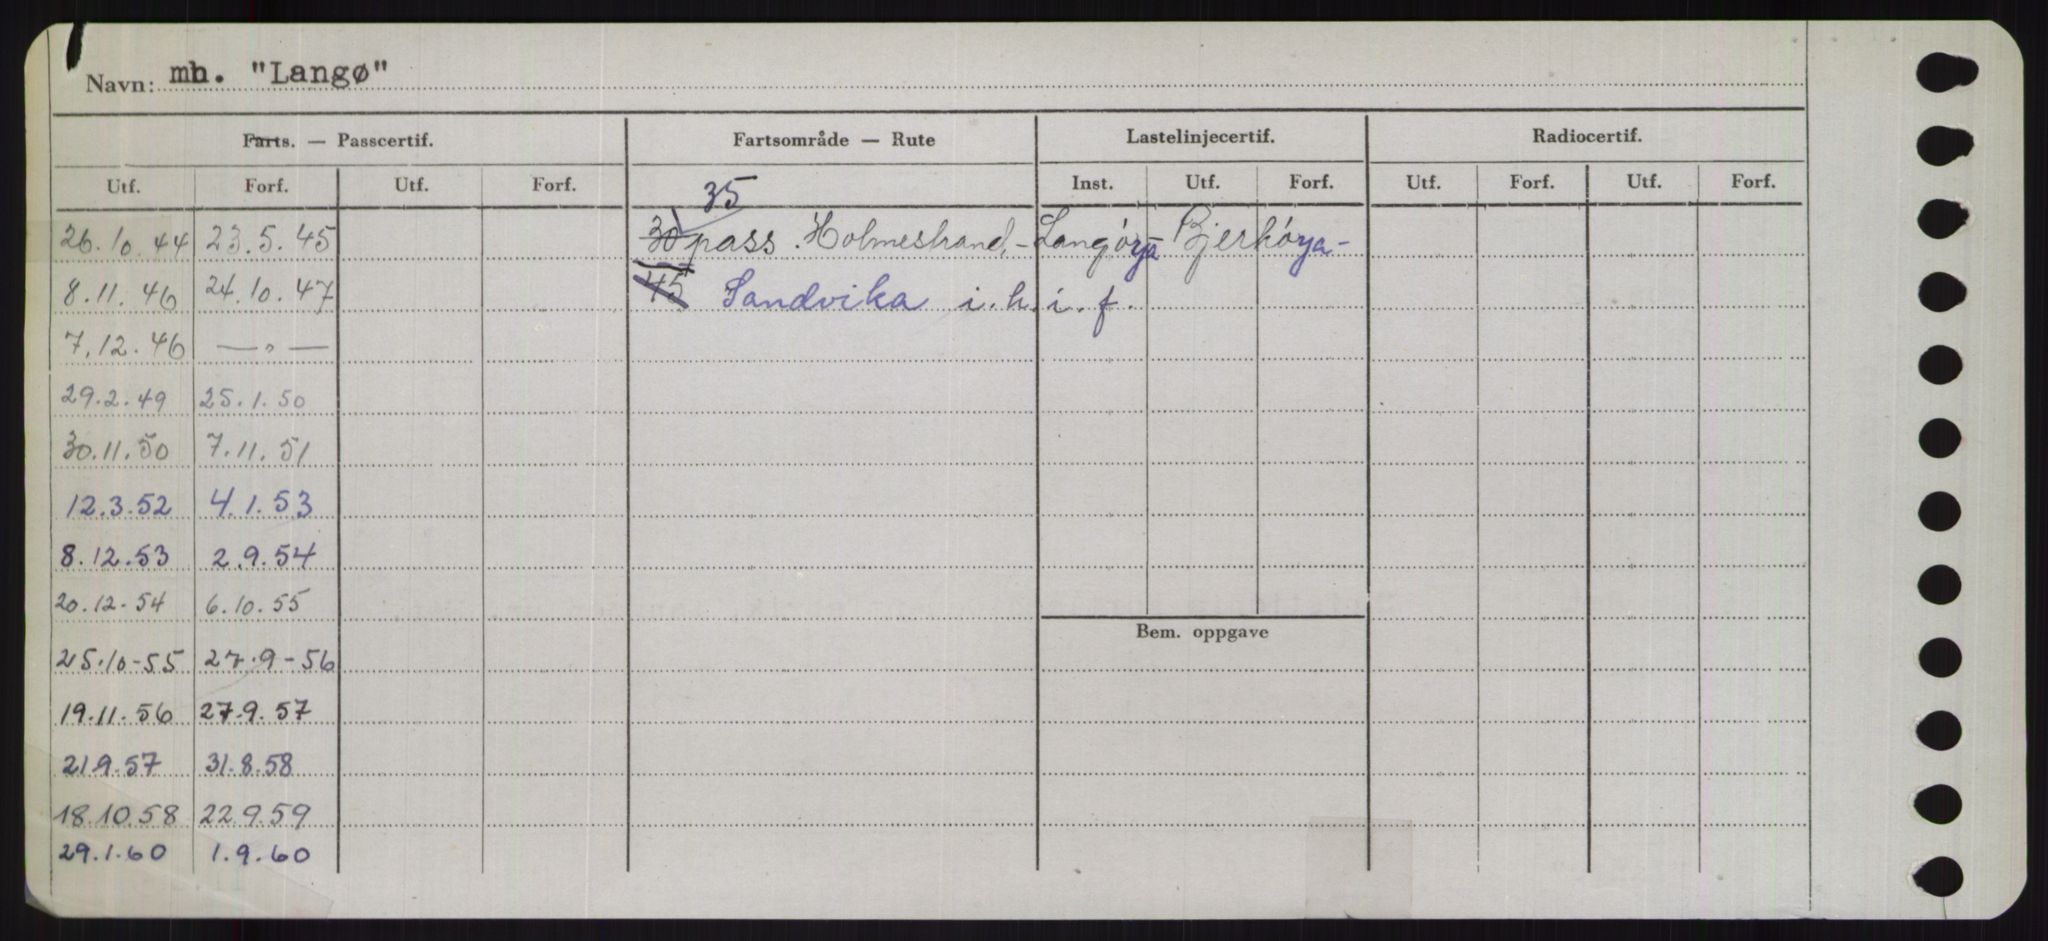 Navn: mh. "Langø"
Farts. — Passcertif. Fartsområde — Rute Lastelinjecertif. Radiocertif.
Utf. Forf. Utf. Forf. Inst. Utf. Forf. Utf. Forf. Utf. Forf.
35
26.10.44 23.5.45 30 pass. Holmestrand, - Langöya - Bjerköya -
8.11.46 24.10.47 45 Sandvika i.h.i.f.
7.12.46 — " —
29.2.49 25.1.50
30.11.50 7.11.51
12.3.52 4.1.53
8.12.53 2.9.54
20.12.54 6.10.55
Bem. oppgave
25.10-55 27.9-56
19.11.56 27.9.57
21 9.57 31.8.58
18.10.58 22.9.59
29.1.60 1.9.60